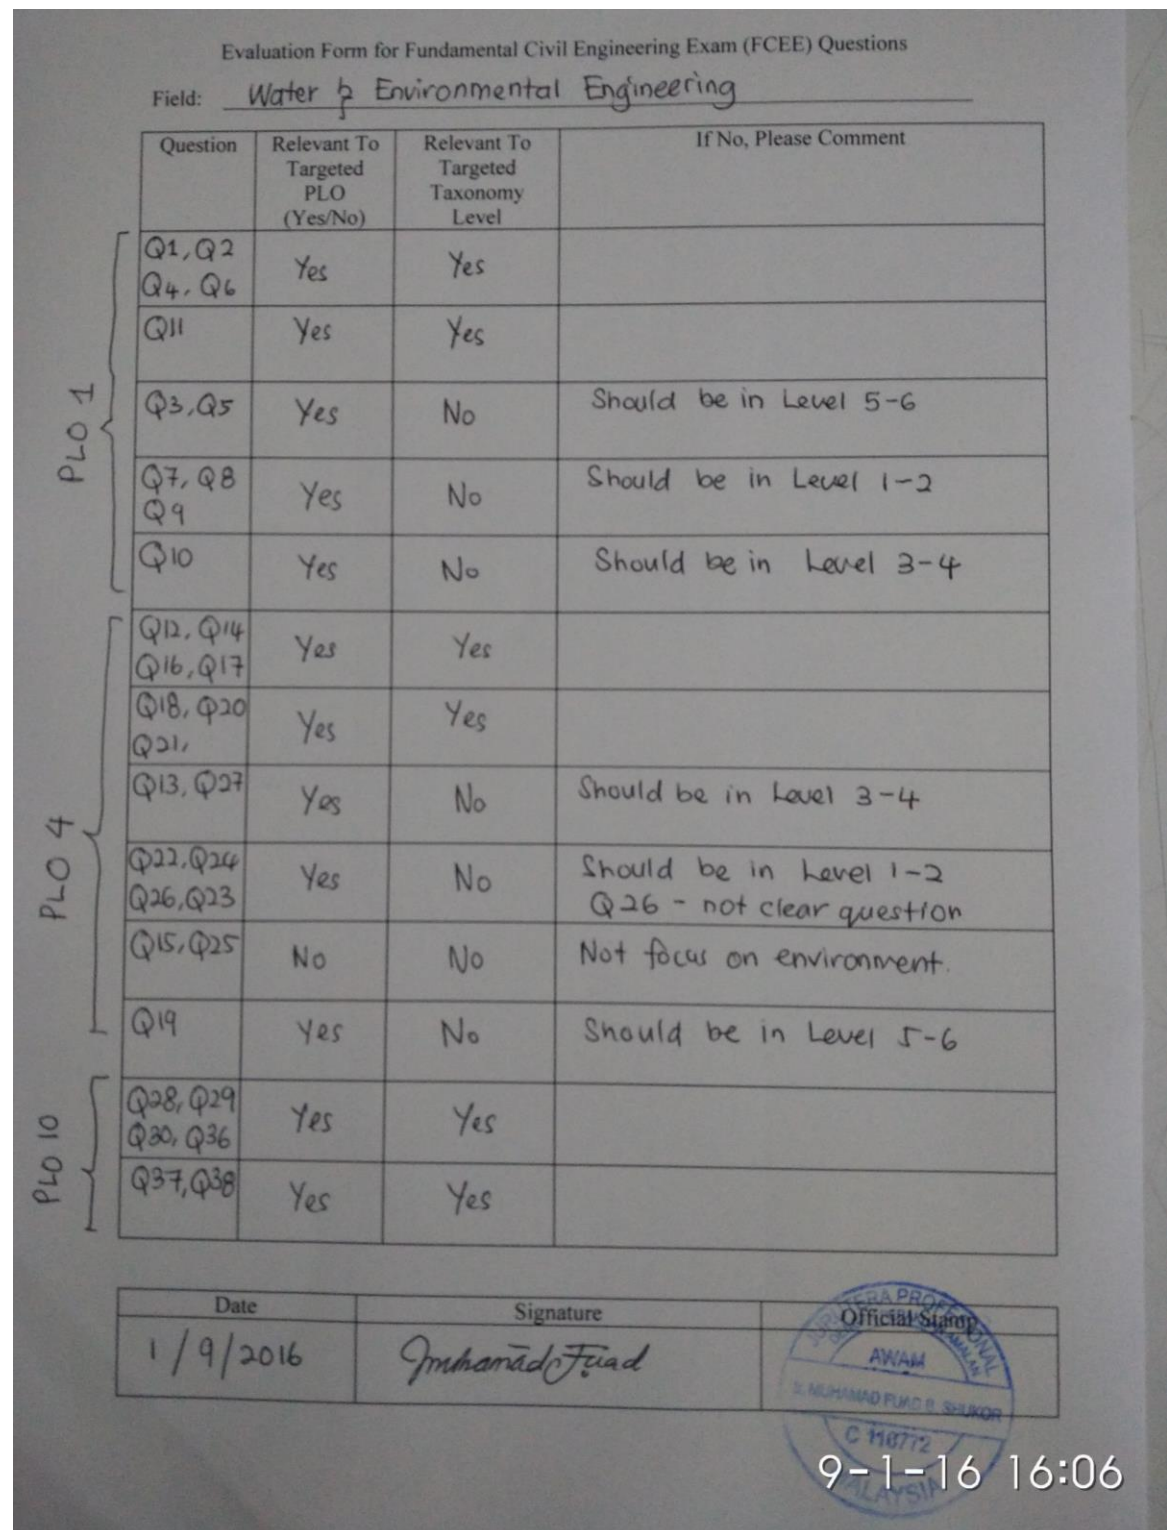 Evaluation Form for Fundamental Civil Engineering Exam (FCEE) Questions
Field: Water & Environmental Engineering
Question Relevant To Targeted PLO (Yes/No) Relevant To Targeted Taxonomy Level If No, Please Comment
PLO 1
Q1, Q2
Q4, Q6 Yes Yes
Q11 Yes Yes
Q3, Q5 Yes No Should be in Level 5-6
Q7, Q8
Q9 Yes No Should be in Level 1-2
Q10 Yes No Should be in Level 3-4
PLO 4
Q12, Q14
Q16, Q17 Yes Yes
Q18, Q20
Q21, Yes Yes
Q13, Q27 Yes No Should be in Level 3-4
Q22, Q24 Yes No Should be in Level 1-2
Q26, Q23 Q26 - not clear question
Q15, Q25 No No Not focus on environment.
Q19 Yes No Should be in Level 5-6
PLO 10
Q28, Q29
Q30, Q36 Yes Yes
Q37, Q38 Yes Yes
Date Signature Official Stamp
1/9/2016 Muhamad Fuad
JURUTERA PROFESIONAL
AWAM
MUHAMAD FUAD B. SHUKOR
MALAYSIA
9-1-16 16:06